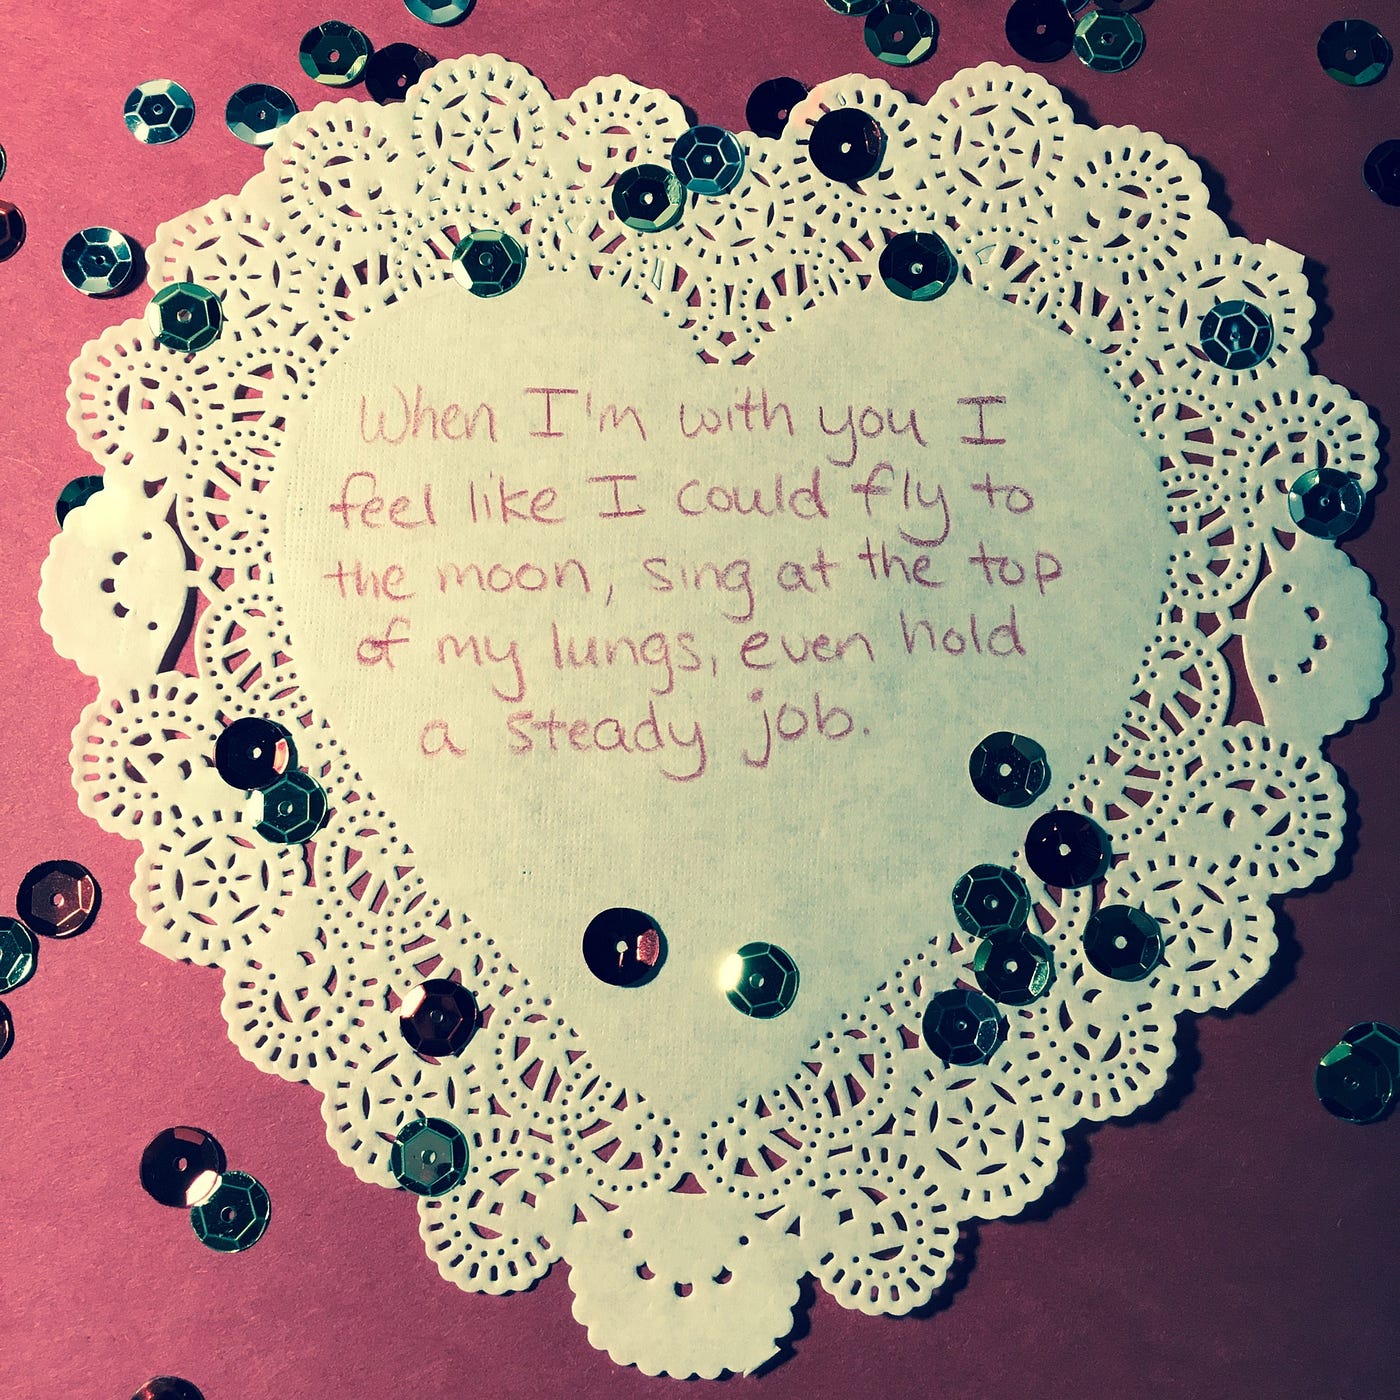 When I'm with you I
feel like I could fly to
the moon, sing at the top
of my lungs, even hold
a steady job.